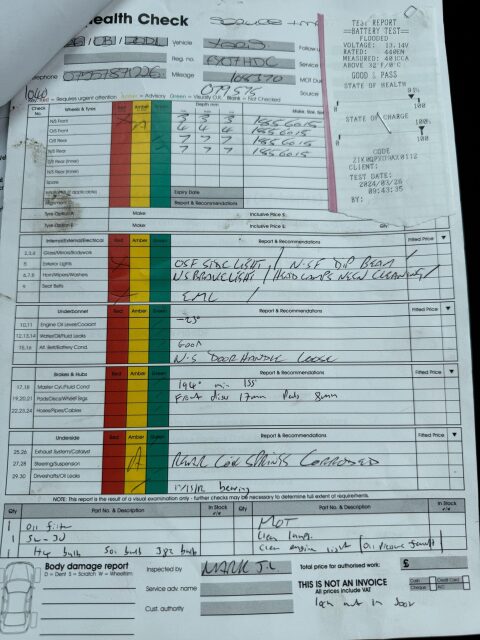 Health Check
SERVICE + MOT
Vehicle YARIS
Reg. no. Service
Telephone Mileage MOT Due
Source
Requires urgent attention Amber = Advisory Green = Visually O.K. Blank = Not Checked
Check No. Wheels & Tyres Red Amber Green Depth mm Make, Size, Spd
N/S Front 3 3 3 185 60 15
O/S Front 4 4 4 185 60 15
O/S Rear 7 7 7 185 60 15
N/S Rear 7 7 7 185 60 15
N/S Rear (Inner)
O/S Rear (Inner)
Spare
Expiry Date
Report & Recommendations
Tyre Option A Make Inclusive Price £:
Tyre Option B Make Inclusive Price £:
TEST REPORT
==BATTERY TEST==
FLOODED
VOLTAGE: 13.14V
RATED: 440EN
MEASURED: 401CCA
ABOVE 32°F/0°C
GOOD & PASS
STATE OF HEALTH
0 100
STATE OF CHARGE
0 100
CODE
CLIENT:
TEST DATE:
2024/03/26
09:43:35
BY:
Internal/External/Electrical Red Amber Green Report & Recommendations Fitted Price
2,3,4 Glass/Mirrors/Bodywork
5 Exterior Lights OSF SIDE LIGHT / N/SF DIP BEAM /
6,7,8 Horn/Wipers/Washers N/S BRAKE LIGHT / HEAD LAMPS NEED CLEANING /
9 Seat Belts EML /
Underbonnet Red Amber Green Report & Recommendations Fitted Price
10,11 Engine Oil Level/Coolant -25°
12,13,14 Water/Oil/Fluid Leaks
15,16 Alt. Belt/Battery Cond. GOOD
N/S DOOR HANDLE LOOSE
Brakes & Hubs Red Amber Green Report & Recommendations Fitted Price
17,18 Master Cyl./Fluid Cond 194° min 155
19,20,21 Pads/Discs/Wheel Brgs Front disc 17mm Pads 8mm
22,23,24 Hoses/Pipes/Cables
Underside Red Amber Green Report & Recommendations Fitted Price
25,26 Exhaust System/Catalyst
27,28 Steering/Suspension A REAR COIL SPRINGS CORRODED
29,30 Driveshafts/Oil Leaks
bearing
NOTE: This report is the result of a visual examination only - further checks may be necessary to determine full extent of requirements.
Qty Part No. & Description In Stock Qty Part No. & Description In Stock
1 Oil filter MOT
1 5w-30 Clean lamps
1 H4 bulb 501 bulb 382 bulb Clear engine light (Oil Pressure fault)
Body damage report
D = Dent S = Scratch W = Wheeltrim
Inspected by MARK J.L
Service adv. name
Cust. authority
Total price for authorised work: £
THIS IS NOT AN INVOICE
All prices include VAT
Cash Credit Card
Cheque